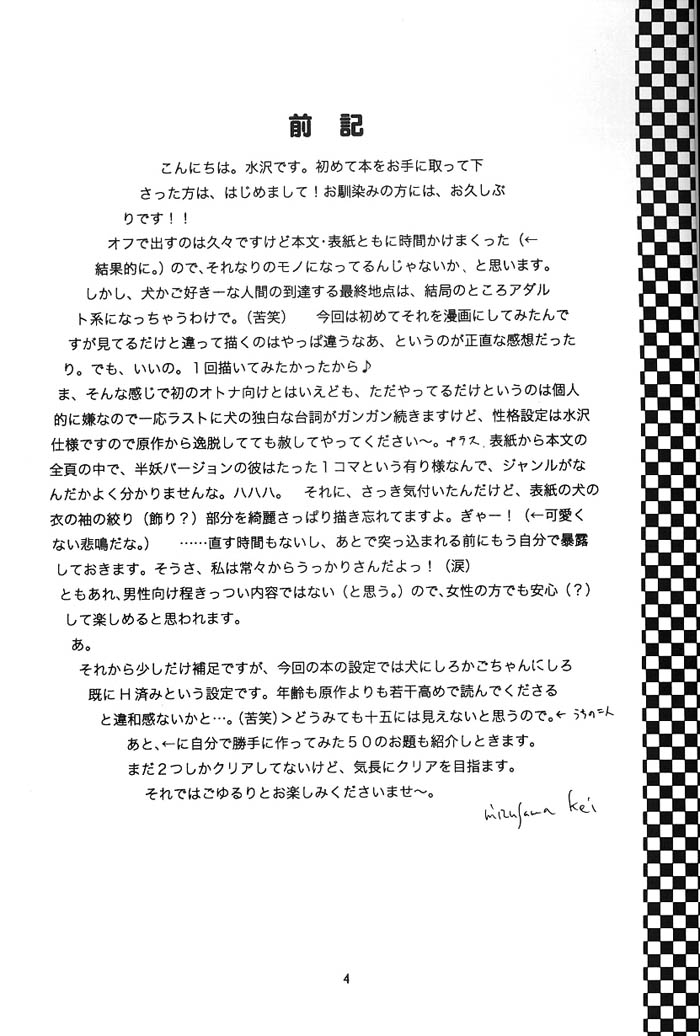 前 記
こんにちは。水沢です。初めて本をお手に取って下
さった方は、はじめまして！お馴染みの方には、お久しぶ
りです！！
オフで出すのは久々ですけど本文・表紙ともに時間かけまくった（←
結果的に。）ので、それなりのモノになってるんじゃないか、と思います。
しかし、犬かご好きーな人間の到達する最終地点は、結局のところアダル
ト系になっちゃうわけで。（苦笑）　今回は初めてそれを漫画にしてみたんで
すが見てるだけと違って描くのはやっぱ違うなあ、というのが正直な感想だった
り。でも、いいの。１回描いてみたかったから♪
ま、そんな感じで初のオトナ向けとはいえども、ただやってるだけというのは個人
的に嫌なので一応ラストに犬の独白な台詞がガンガン続きますけど、性格設定は水沢
仕様ですので原作から逸脱してても赦してやってください〜。プラス、表紙から本文の
全頁の中で、半妖バージョンの彼はたった１コマという有り様なんで、ジャンルがな
んだかよく分かりませんな。ハハハ。　それに、さっき気付いたんだけど、表紙の犬の
衣の袖の絞り（飾り？）部分を綺麗さっぱり描き忘れてますよ。ぎゃー！（←可愛く
ない悲鳴だな。）　……直す時間もないし、あとで突っ込まれる前にもう自分で暴露
しておきます。そうさ、私は常々からうっかりさんだよっ！（涙）
ともあれ、男性向け程きっつい内容ではない（と思う。）ので、女性の方でも安心（？）
して楽しめると思われます。
あ。
それから少しだけ補足ですが、今回の本の設定では犬にしろかごちゃんにしろ
既にＨ済みという設定です。年齢も原作よりも若干高めで読んでくださる
と違和感ないかと…。（苦笑）＞どうみても十五には見えないと思うので。← うちの二人
あと、←に自分で勝手に作ってみた５０のお題も紹介しときます。
まだ２つしかクリアしてないけど、気長にクリアを目指ます。
それではごゆるりとお楽しみくださいませ〜。
mizusawa Kei
4